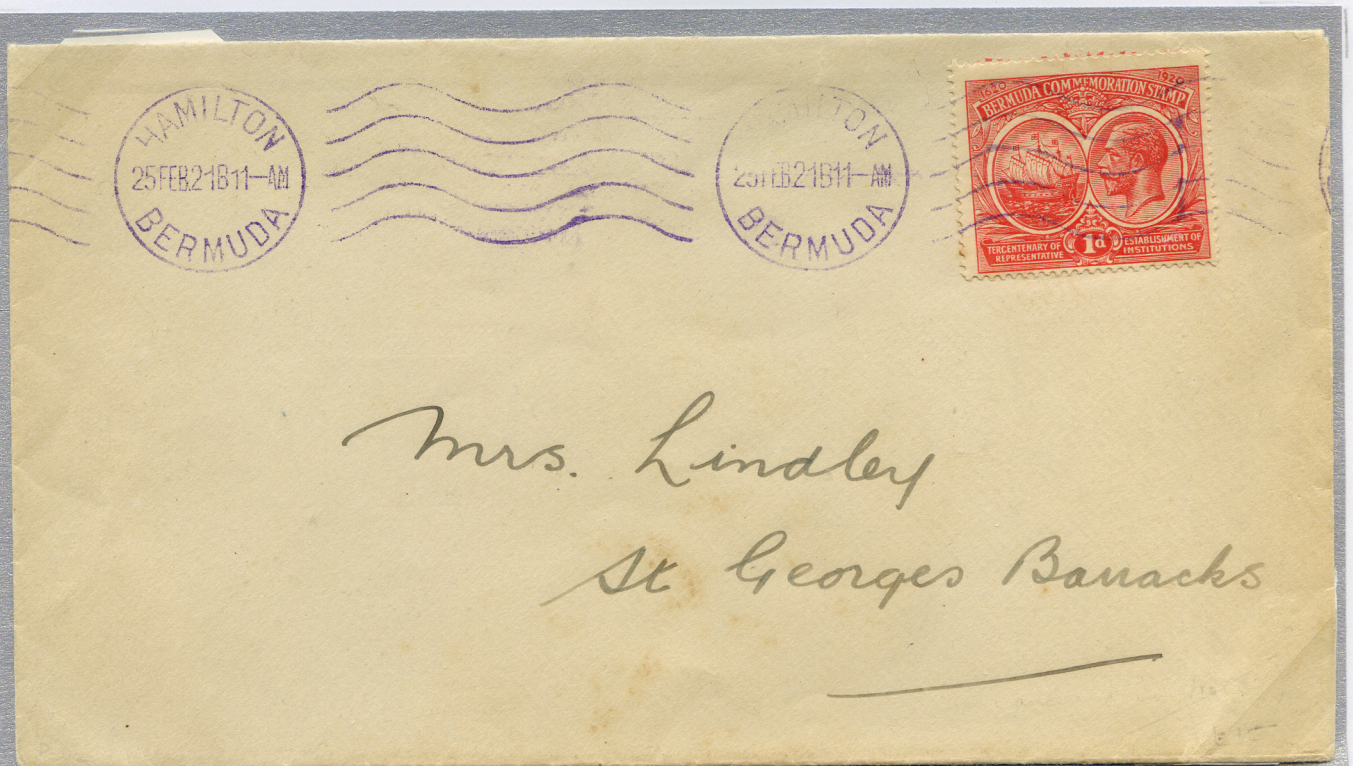 HAMILTON
25FEB.21B11–AM
BERMUDA
HAMILTON
25FEB21B11–AM
BERMUDA
1620 1920
BERMUDA COMMEMORATION STAMP
TERCENTENARY OF REPRESENTATIVE
1d
ESTABLISHMENT OF INSTITUTIONS
Mrs. Lindley
St Georges Barracks